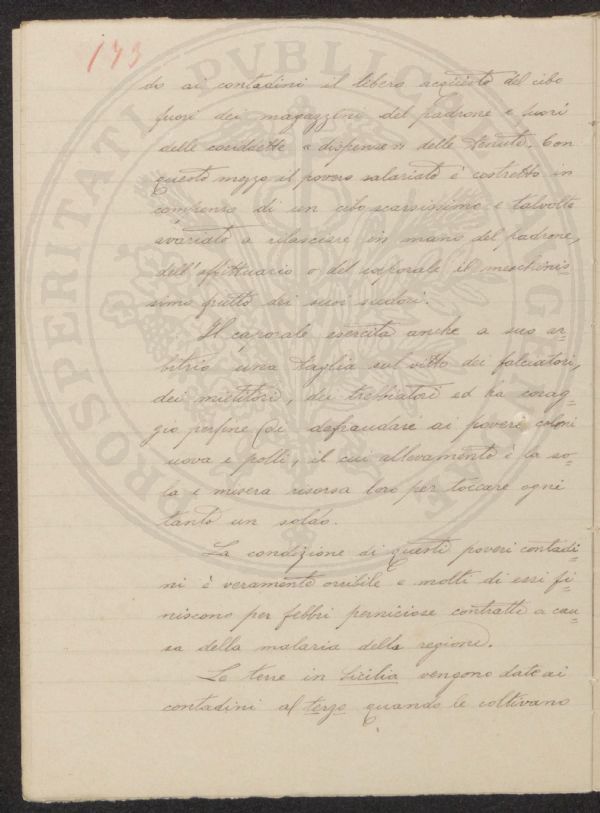 173
do ai contadini il libero acquisto del cibo
fuori dei magazzini del padrone e fuori
delle cosiddette « dispense » delle tenute. Con
questo mezzo il povero salariato è costretto in
compenso di un cibo scarsissimo e talvolta
svariato a rilasciare in mano del padrone,
dell'affittuario o del caporale il meschinis-
simo frutto dei suoi sudori.
Il caporale esercita anche a suo ar-
bitrio una taglia sul vitto dei falciatori,
dei mietitori, dei trebbiatori ed ha corag-
gio perfine di defraudare ai poveri coloni
uova e polli, il cui allevamento è la so-
la e misera risorsa loro per toccare ogni
tanto un soldo.
La condizione di questi poveri contadi-
ni è veramente orribile e molti di essi fi-
niscono per febbri perniciose contratte a cau-
sa della malaria della regione.
Le terre in Sicilia vengono date ai
contadini al terzo quando le coltivano
PROSPERITATI PVBLICAE